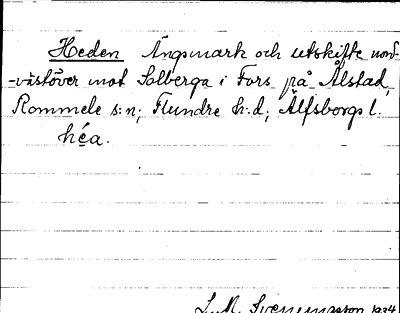 Heden Ängsmark och utskifte nord-
-västöver mot Solberga i Fors på Ålstad,
Rommele s:n; Flundre h:d; Älfsborgs l.
héa.
L.M. Svenungsson 1934